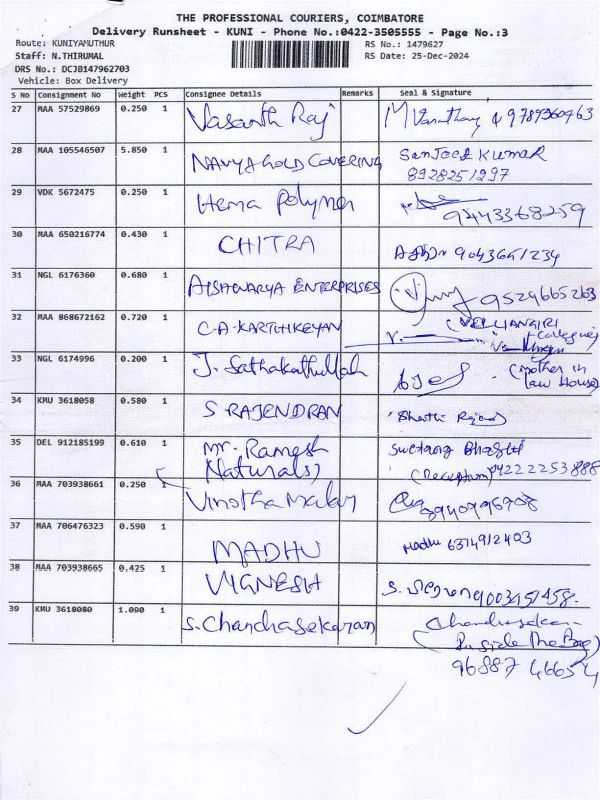 THE PROFESSIONAL COURIERS, COIMBATORE
Delivery Runsheet - KUNI - Phone No.:0422-3505555 - Page No.:3
Route: KUNIYAMUTHUR RS No.: 1479627
Staff: N.THIRUMAL RS Date: 25-Dec-2024
DRS No.: DCJB147962703
Vehicle: Box Delivery
S No Consignment No Weight PCS Consignee Details Remarks Seal & Signature
27 MAA 57529869 0.250 1 Vasanth Raj 9789360963
28 MAA 105546507 5.850 1 NAVYA GOLD COVERING Sanjeet Kumar
8928251297
29 VDK 5672475 0.250 1 Hema Polymer
9443368259
30 MAA 650216774 0.430 1 CHITRA 9043641234
31 NGL 6176360 0.680 1 AISHWARYA ENTERPRISES 9524665263
32 MAA 868672162 0.720 1 C.A. KARTHIKEYAN (VELLIANGIRI
33 NGL 6174996 0.200 1 J. Sathakathullah (Mother in
law House)
34 KMU 3618058 0.580 1 S RAJENDRAN
35 DEL 912185199 0.610 1 Mr. Ramesh
(Naturals) (Reception) 04222253888
36 MAA 703938661 0.250 1 Vinotha Malar 8940996908
37 MAA 706476323 0.590 1 MADHU Madhu 6374912403
38 MAA 703938665 0.425 1 VIGNESH 9003451458
39 KMU 3618080 1.090 1 S. Chandrasekaran Chandrasekaran
96887 46654